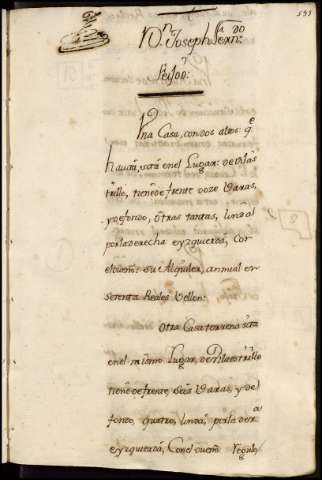 551
Dn. Joseph Fern.do
Feijoo:
Vna Casa, con dos altos: q.e
havita, scita en el Lugar: de Pilas
trillo, tiene de frente doze Varas,
y de fondo, otras tantas, linda al
por la derecha e yzquierda, con
el suem: su Alquiler, annual en
setenta Reales Vellon:
Otra Casa terrena scita
en el mismo Lugar, de Pilas trillo
tiene de frente, seis Varas, y de
fondo, quatro, linda, por la dere.a
e yzquierda, Con el suem: